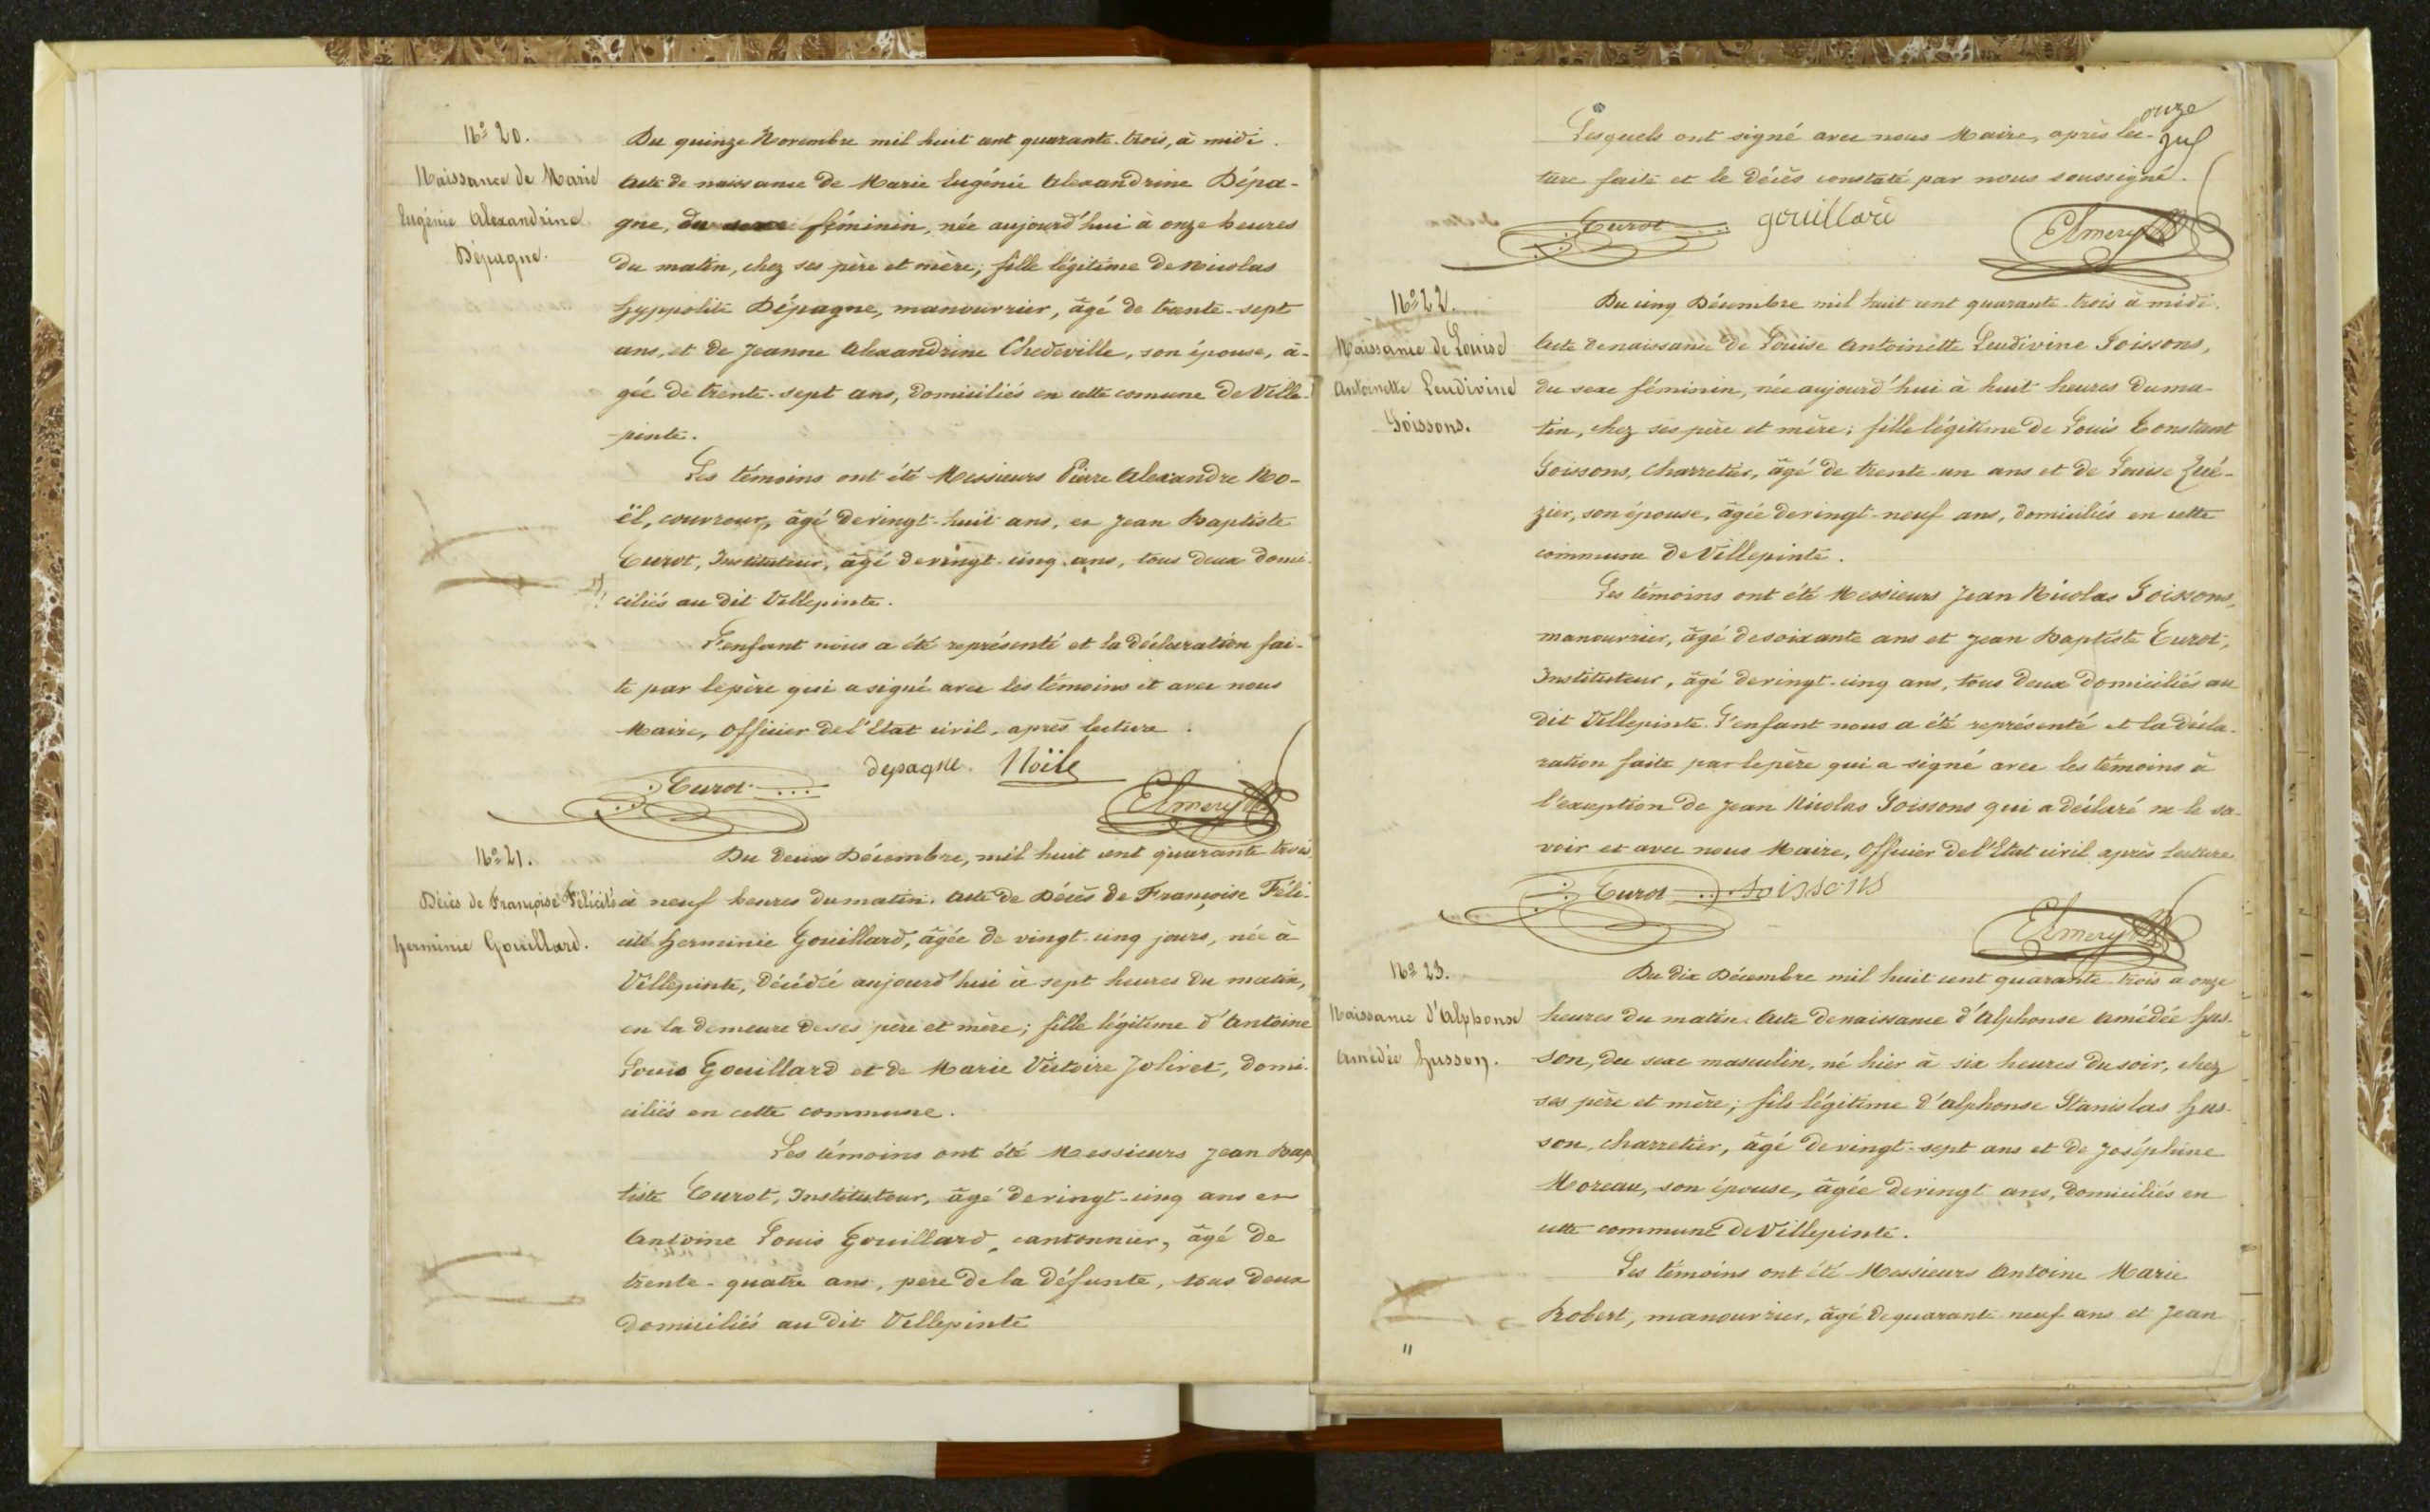 Nº 20.
Naissance de Marie
Eugénie Alexandrine
Dépagne.
Du quinze Novembre mil huit cent quarante-trois, à midi.
Acte de naissance de Marie Eugénie Alexandrine Dépa-
gne, du sexe féminin, née aujourd'hui à onze heures
du matin, chez ses père et mère; fille légitime de Nicolas
Hyppolite Dépagne, manouvrier, âgé de trente-sept
ans, et de Jeanne Alexandrine Chedeville, son épouse, â-
gée de trente-sept ans, domiciliés en cette comune de Ville-
pinte.
Les témoins ont été Messieurs Pierre Alexandre No-
ël, couvreur, âgé de vingt-huit ans, et Jean Baptiste
Curot, Instituteur, âgé de vingt-cinq ans, tous deux domi-
ciliés au dit Villepinte.
L'enfant nous a été représenté et la déclaration fai-
te par le père qui a signé avec les témoins et avec nous
Maire, Officier de l'Etat civil, après lecture.
Curot depagne. Noële Elmery
Nº 21.
Décès de Françoise Félicité
Herminie Gouillard.
Du deux Décembre, mil huit cent quarante trois
à neuf heures du matin. Acte de Décès de Françoise Féli-
cité Herminie Gouillard, âgée de vingt-cinq jours, née à
Villepinte, décédée aujourd'hui à sept heures du matin,
en la demeure de ses père et mère; fille légitime d'Antoine
Louis Gouillard et de Marie Victoire Jolivet, domi-
ciliés en cette commune.
Les témoins ont été Messieurs Jean Bap
tiste Curot, Instituteur, âgé de vingt-cinq ans et
Antoine Louis Gouillard, cantonnier, âgé de
trente-quatre ans, père de la défunte, tous deux
domiciliés au dit Villepinte
onze
Lesquels ont signé avec nous Maire, après lec-
ture faite et le décès constaté par nous soussigné.
Curot gouillard Elmery
Nº 22.
Naissance de Louise
Antoinette Leudivine
Soissons.
Du cinq Décembre mil huit cent quarante-trois à midi.
Acte de naissance de Louise Antoinette Leudivine Soissons,
du sexe féminin, née aujourd'hui à huit heures du ma-
tin, chez ses père et mère; fille légitime de Louis Constant
Soissons, Charretier, âgé de trente-un ans et de Louise
zier, son épouse, âgée de vingt-neuf ans, domiciliés en cette
commune de Villepinte.
Les témoins ont été Messieurs Jean Nicolas Soissons,
manouvrier, âgé de soixante ans et Jean Baptiste Curot,
Instituteur, âgé de vingt-cinq ans, tous deux domiciliés au
dit Villepinte. L'enfant nous a été représenté et la décla-
ration faite par le père qui a signé avec les témoins à
l'exception de Jean Nicolas Soissons qui a déclaré ne le sa-
voir et avec nous Maire, Officier de l'Etat civil après lecture
Curot soissons Elmery
Nº 23.
Naissance d'Alphonse
Amédée Husson.
Du dix Décembre mil huit cent quarante-trois à onze
heures du matin. Acte de naissance d'Alphonse Amédée Hus-
son, du sexe masculin, né hier à six heures du soir, chez
ses père et mère; fils légitime d'Alphonse Stanislas Hus-
son, charretier, âgé de vingt-sept ans et de Joséphine
Moreau, son épouse, âgée de vingt ans, domiciliés en
cette commune de Villepinte.
Les témoins ont été Messieurs Antoine Marie
Robert, manouvrier, âgé de quarante-neuf ans et Jean
11